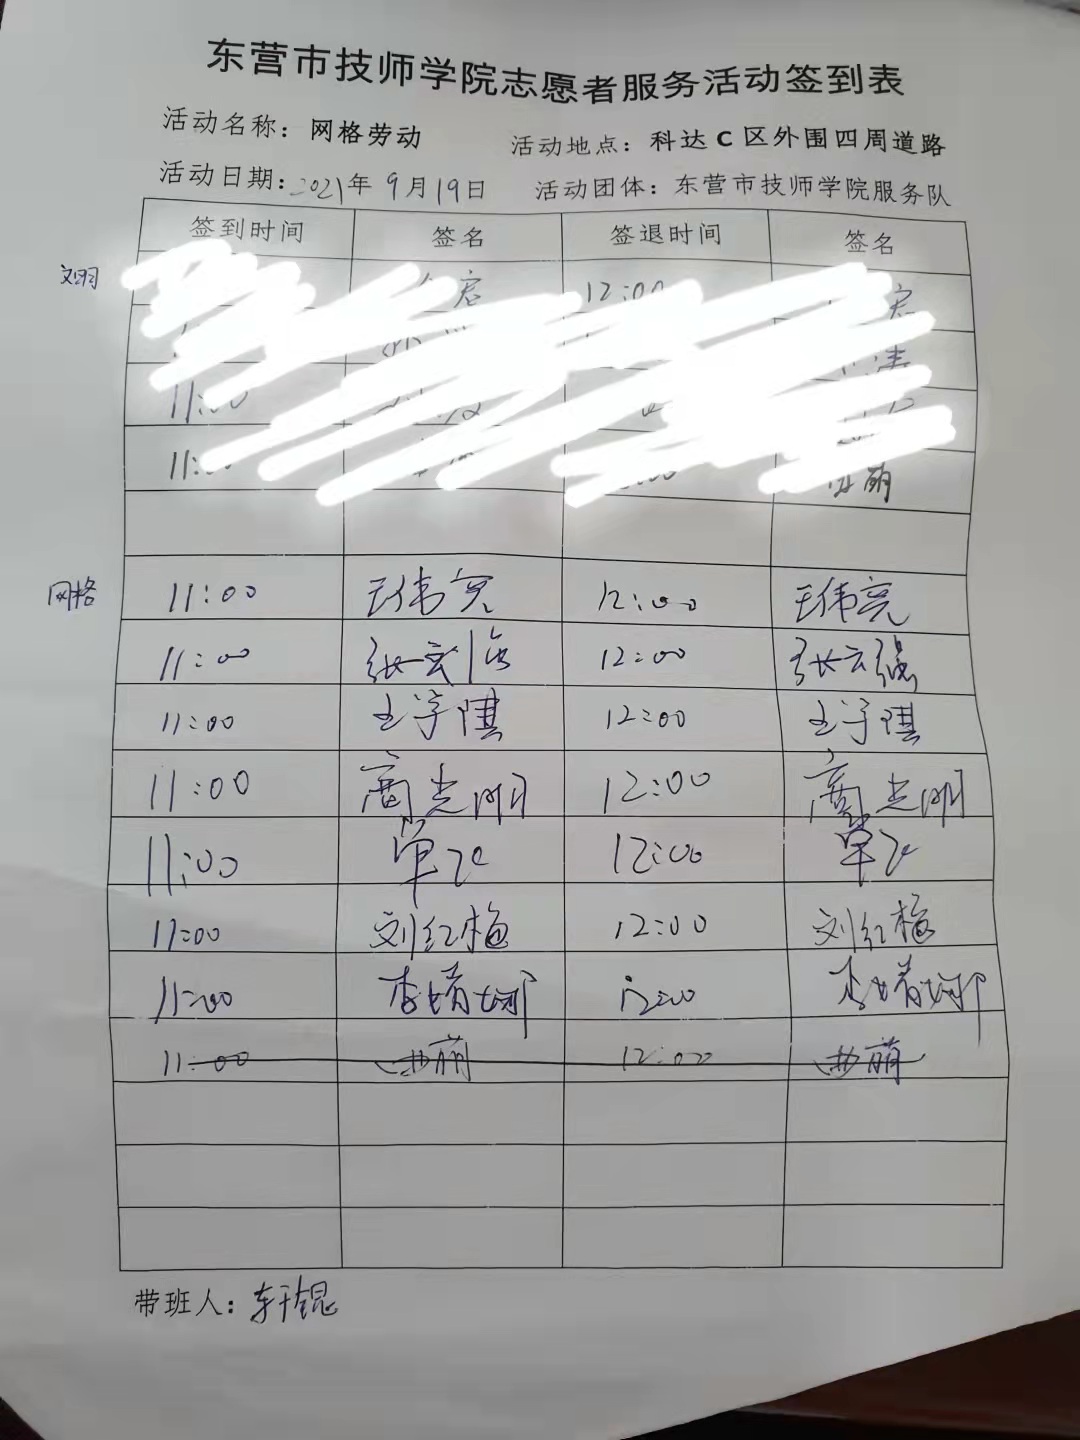 东营市技师学院志愿者服务活动签到表
活动名称：网格劳动 活动地点：科达C区外围四周道路
活动日期：2021年9月19日 活动团体：东营市技师学院服务队
签到时间 签名 签退时间 签名
12:00
11:00
萌
网格 11:00 王伟亮 12:00 王伟亮
11:00 张云强 12:00 张云强
11:00 王宇琪 12:00 王宇琪
11:00 商光明 12:00 商光明
11:00 单飞 12:00 单飞
11:00 刘红梅 12:00 刘红梅
11:00 李婧娜 12:00 李婧娜
11:00 曲萌 12:00 曲萌
带班人：轩锟